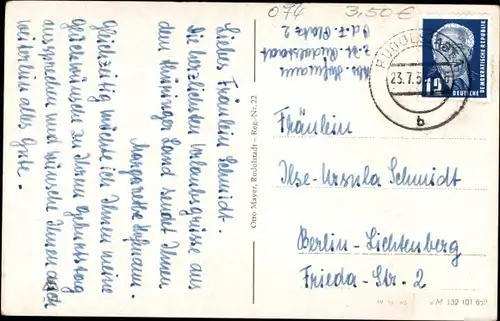 074
3,50 €
Abs. Hofmann
z. Zt. Rudolstadt
Pl. d. F. Platz 2
RUDOLSTADT
23.7.5
b
12
DEUTSCHE
DEMOKRATISCHE REPUBLIK
Liebes Fräulein Schmidt.
Die herzlichsten Urlaubsgrüsse aus
dem Thüringer Land sendet Ihnen
Margarethe Hofmann.
Gleichzeitig möchte ich Ihnen meine
Glückwünsche zu Ihrem Geburtstag
aussprechen und wünsche Ihnen auch
weiterhin alles Gute.
Otto Mayer, Rudolstadt - Reg.-Nr. 22
Fräulein
Ilse-Ursula Schmidt
Berlin-Lichtenberg
Frieda-Str. 2
M 132 101